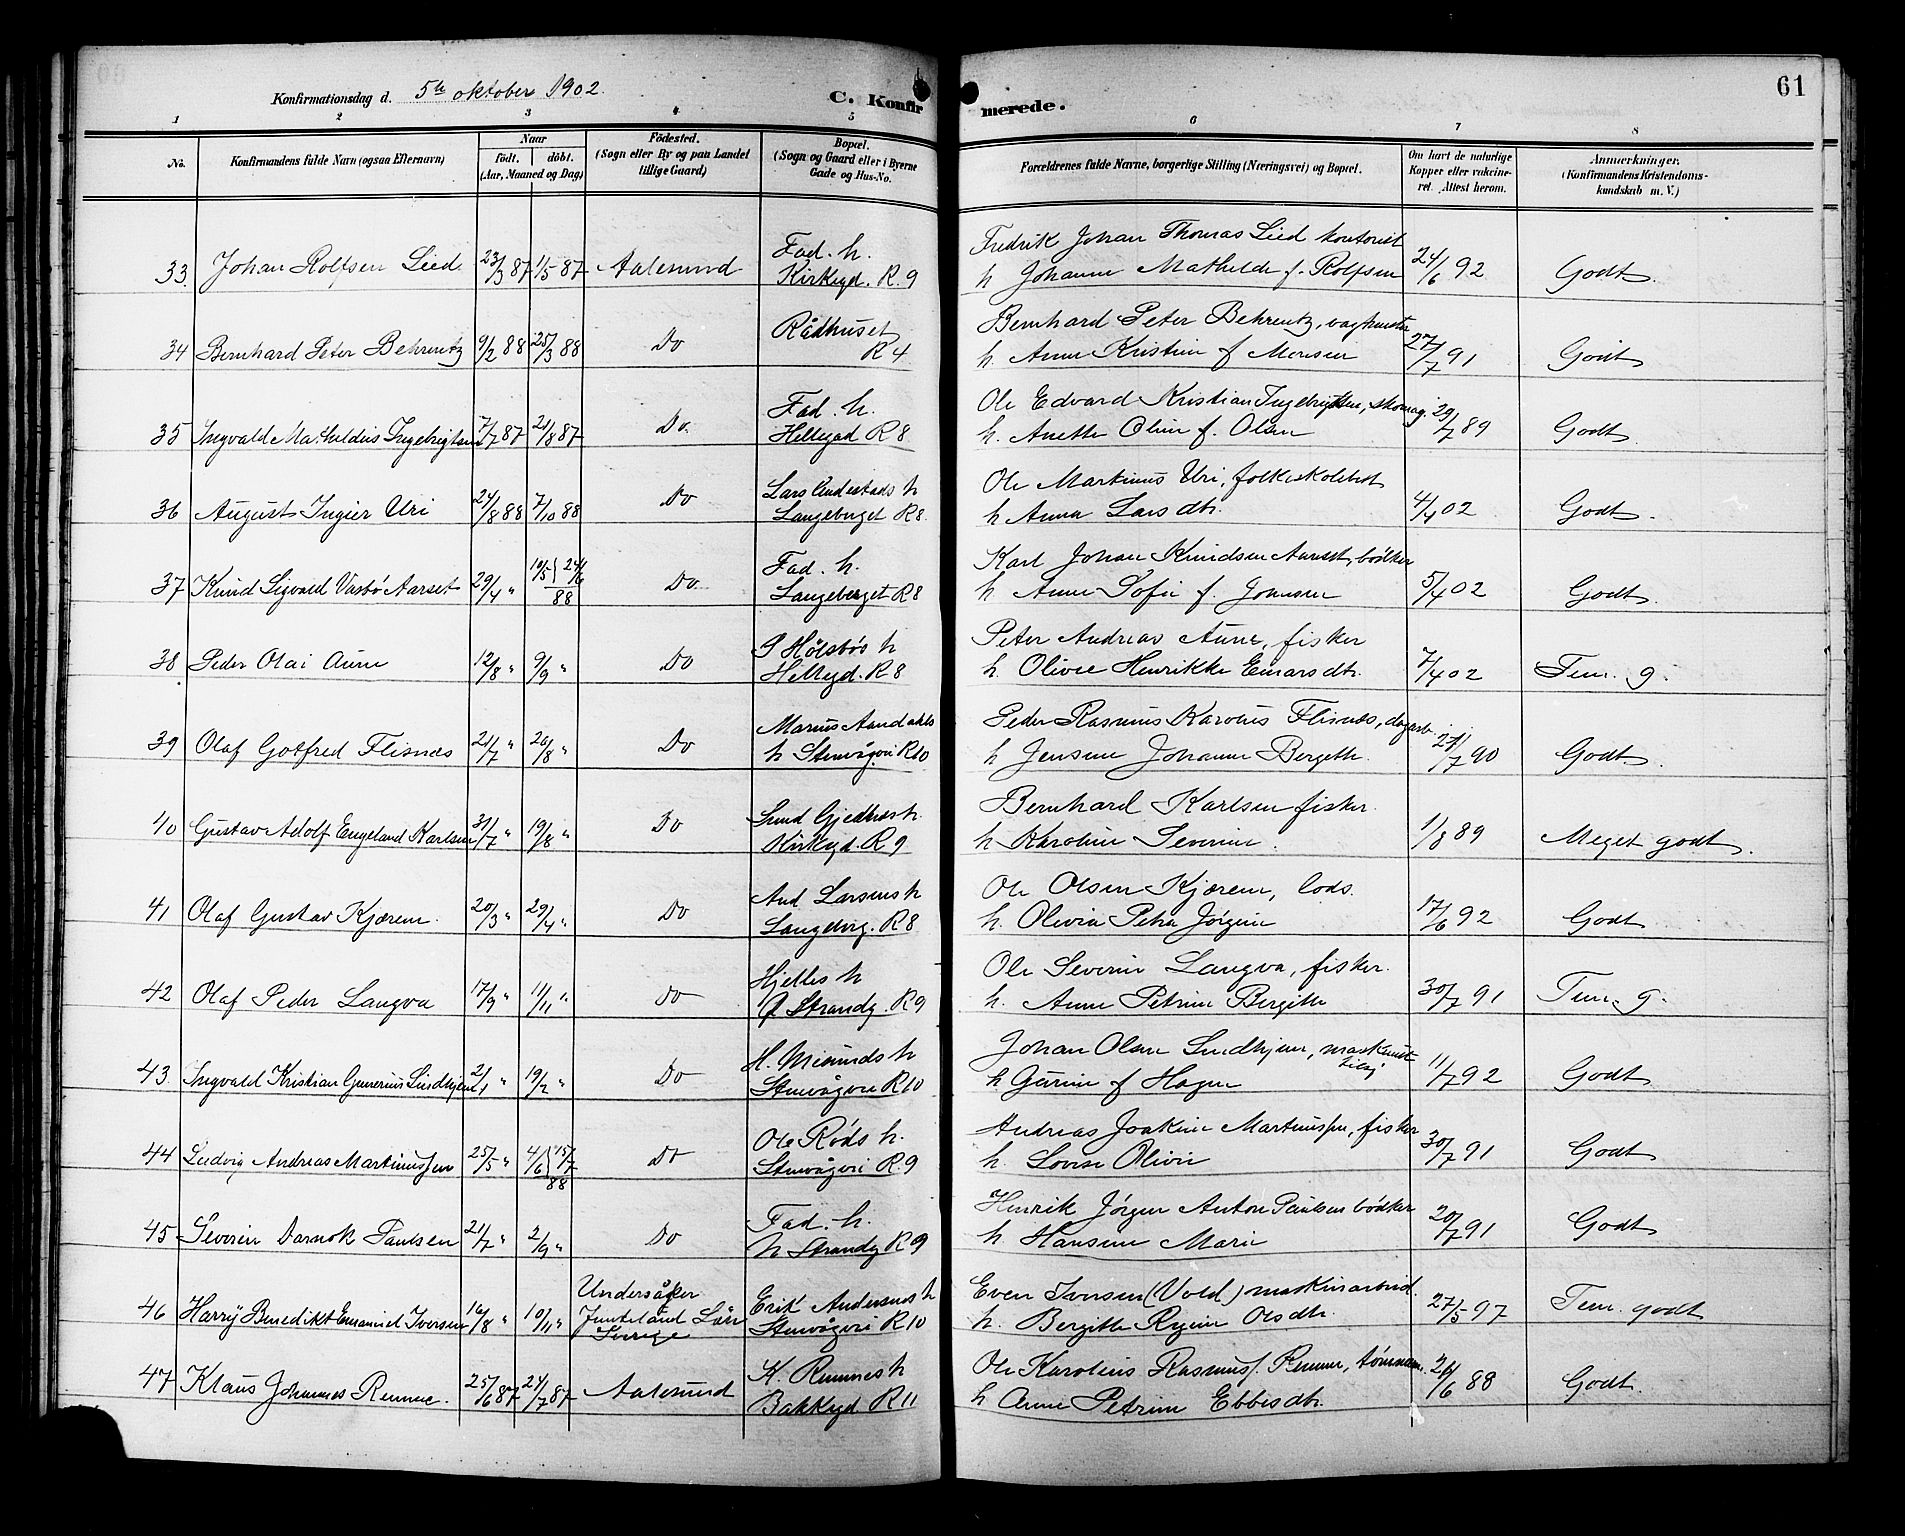 61
Konfirmationsdag d. 5te oktober 1902. C. Konfirmerede.
1 2 3 4 5 6 7 8
No. Konfirmandens fulde Navn (ogsaa Efternavn) Naar født. døbt. (Aar, Maaned og Dag) Fødested. (Sogn eller By og paa Landet tillige Gaard) Bopæl. (Sogn og Gaard eller i Byerne Gade og Hus-No. Forældrenes fulde Navne, borgerlige Stilling (Næringsvei) og Bopæl. Om havt de naturlige Kopper eller vakcineret. Attest herom. Anmærkninger. (Konfirmandens Kristendomskundskab m. V.)
Fad. h. Fredrik Johan Thomas Lied kontorist
33. Johan Rolfsen Lied 23/3 87 1/5 87 Aalesund Kirkegd. R. 9 h Johanne Mathilde f. Rolfsen 24/6 92 Godt.
Rådhuset Bernhard Peter Behrentz, vagtmester
34 Bernhard Peter Behrentz 9/2 88 25/3 88 Do R 4 h. Anne Kristine f Monsen 27/7 91 Godt
Fad. h. Ole Edvard Kristian Ingebrigtsen, skomag.
35 Ingvald Mathildus Ingebrigtsen 7/7 87 21/8 87 Do. Hellegad R 8 h. Anette Oline f. Olsen 29/7 89 Godt
h Ole Martinus Uri, folkeskolebest
36 August Ingier Uri 24/8 88 7/10 88 Do Langeberget R 8. h Anna Larsdtr. 4/4 02 Godt.
Fad. h. Karl Johan Knudsen Aarset, bødker
37 Knud Sigvald Vasbø Aarset 29/4 " 10/5 } 24/6 88 Do Langeberget R 8 h Anne Sofie f. Johnsen 5/4 02 Godt.
P Holsbøs h Peter Andreas Aune, fisker
38 Peder Olai Aune 12/8 " 9/9 " Do Hellegd. R 8 h. Olivie Henrikke Einarsdtr. 7/4 02 Tem. g.
Marius Aandahls Peder Rasmus Karolius Flisnes, dagarb.
39 Olaf Gotfred Flisnæs 21/7 " 26/8 " Do h Stenvågøri R 10 h Jensine Johanne Bergette 21/7 90 Godt.
Gjedtnes h. Bernhard Karlsen fisker.
40 Gustav Adolf Engeland Karlsen 31/7 " 19/8 " Do Kirkegd. R 9 h Karoline Severine. 1/8 89 Meget godt.
And Larsens h Ole Olsen Kjærem, lods.
41 Olaf Gustav Kjærem. 20/3 " 29/4 " Do Langebrg. R 8 h. Olivia Petra Jørgine 17/6 92 Godt
Hjelles h Ole Severin Langva, fisker.
42 Olaf Peder Langva 17/9 " 11/11 " Do Ø Strandg. R 9 h. Anne Petrine Bergitte 30/7 91 Tem. g.
H. Misunds h Johan Olsen Lindhjem,
43. Ingvald Kristian Gunerius Lindhjem 2/1 " 19/2 " Do Stenvågøri R 10 h Gurine f Hagen 11/7 92 Godt
Ole Røds h. Andreas Joakim Martinussen, fisker
44 Ludvig Andreas Martinussen 25/5 " 4/6 } 15/7 88 Do Stenvågøri R. 9 h. Lovise Olivie 30/7 91 Godt
Fad. h. Henrik Jørgen Anton Paulsen bødker
45 Severin Darnok Paulsen 21/7 " 2/9 " Do N Strandg R 9 h Hansine Marie 20/7 91 Godt
Undersåker Jemteland Län Sverige Erik Andersens h Even Iversen (Vold) maskinarbeid.
46 Harry Benedikt Emanuel Iversen 16/8 " 10/11 " Stenvågøri R 10 h. Bergitte Olsdtr. 27/5 97 Tem. godt
K. Remmes h Ole Karolius Rasmuss. Remme, tømmerm.
47 Klaus Johannes Remme. 25/6 87 24/7 87 Aalesund Bakkegd R 11 h Anne Petrine Ebbesdtr. 26/6 88 Godt.